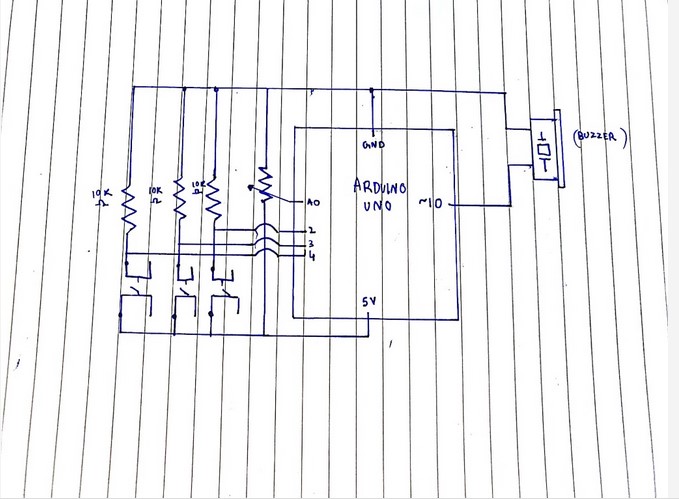 GND
(BUZZER)
10K
Ω
10K
Ω
10K
Ω
A0
ARDUINO
UNO
~10
2
3
4
5V